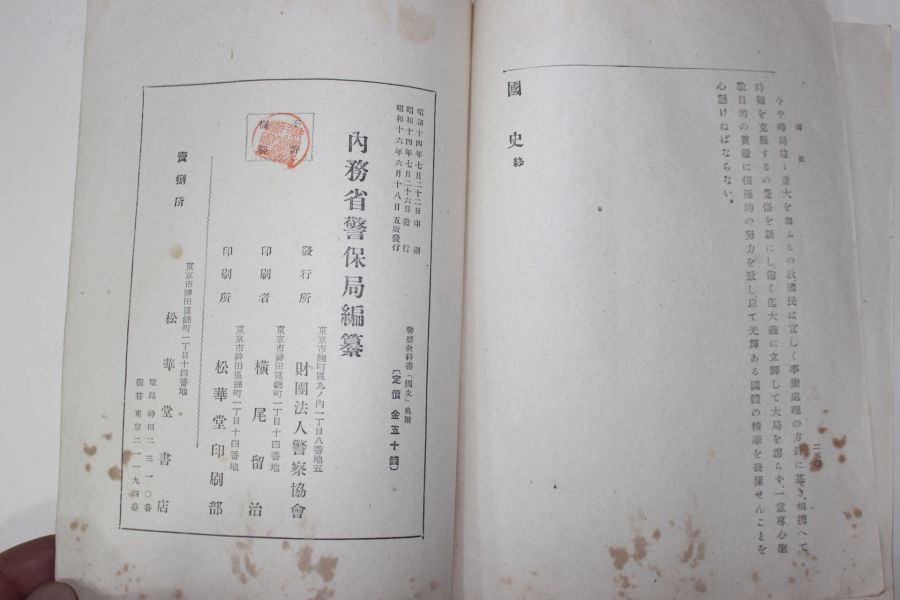 國史
二五〇
今や時局益々重大を加ふるの秋國民は宜しく事變處理の方針に基き、相携へて
時難を克服するの覺悟を新にし飽く迄大義に立脚して大局を謬らず、一意專心聖
戰目的の貫徹に積極的の努力を致し以て光輝ある國體の精華を發揮せんことを
心懸けねばならない。
國史 終
昭和十四年七月二十二日印刷
昭和十四年七月二十六日發行
昭和十六年六月十八日五版發行
警察敎科書「國史」奧附
(定價 金五十錢)
內務省警保局編纂
東京市麴町區丸ノ內一丁目八番地五
發行所 財團法人警察協會
東京市神田區錦町一丁目十四番地
印刷者 橫尾留治
東京市神田區錦町一丁目十四番地
印刷所 松華堂印刷部
東京市神田區錦町一丁目十四番地
賣捌所 松華堂書店
電話神田二三一〇番
振替東京二一一九四番